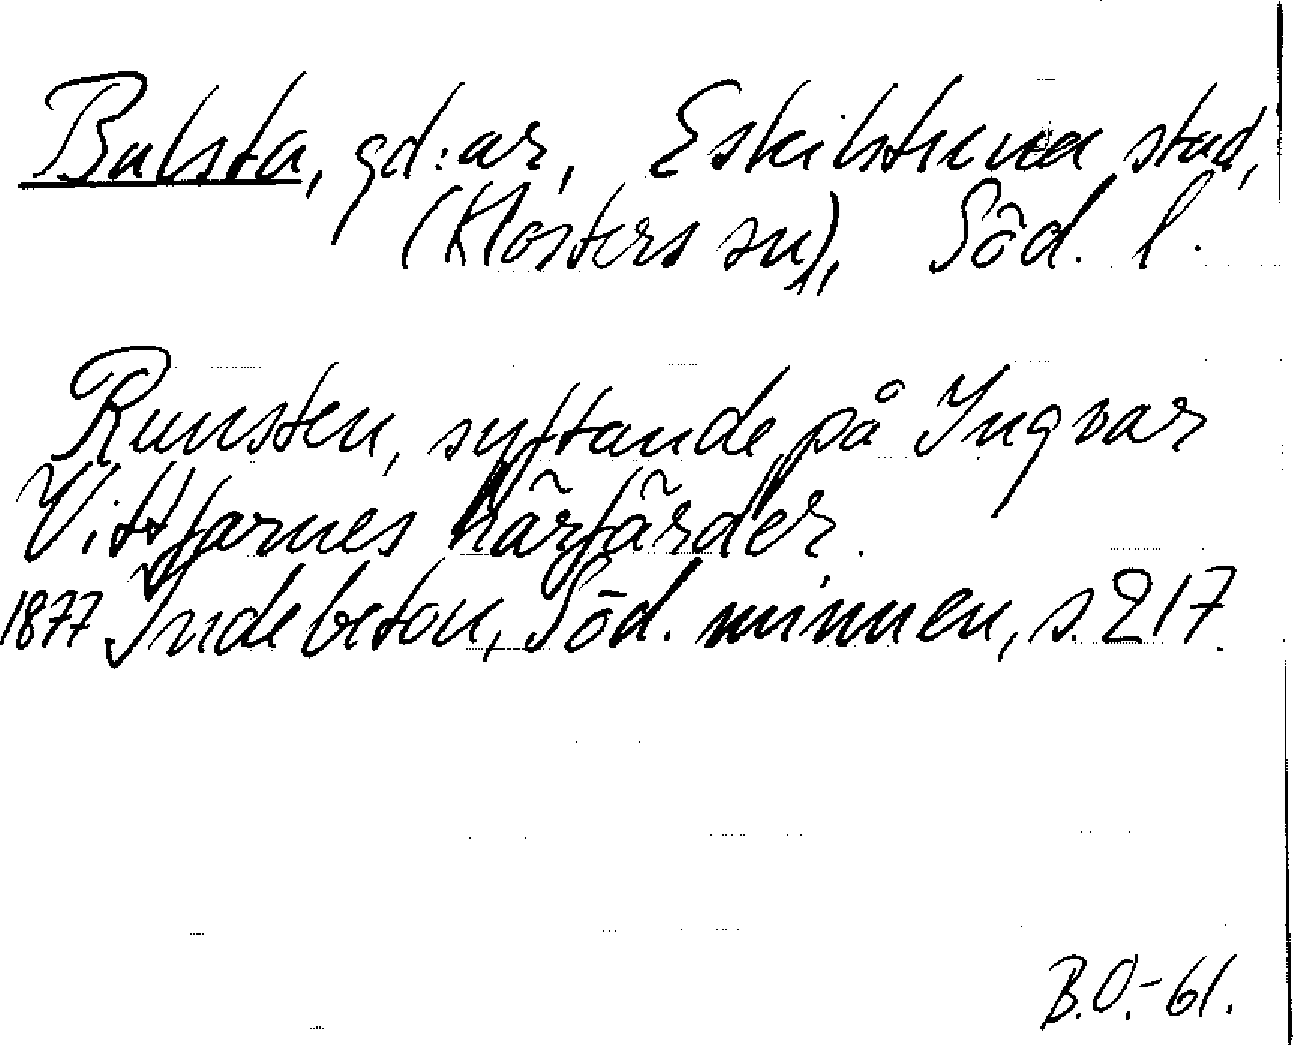 Balsta, gd:ar, Eskilstuna stad,
(Klosters sn), Söd. l.
Runsten, syftande på Ingvar
Vittfarnes härfärder.
1877 Indebetou, Söd. minnen, s. 217.
B.O.-61.